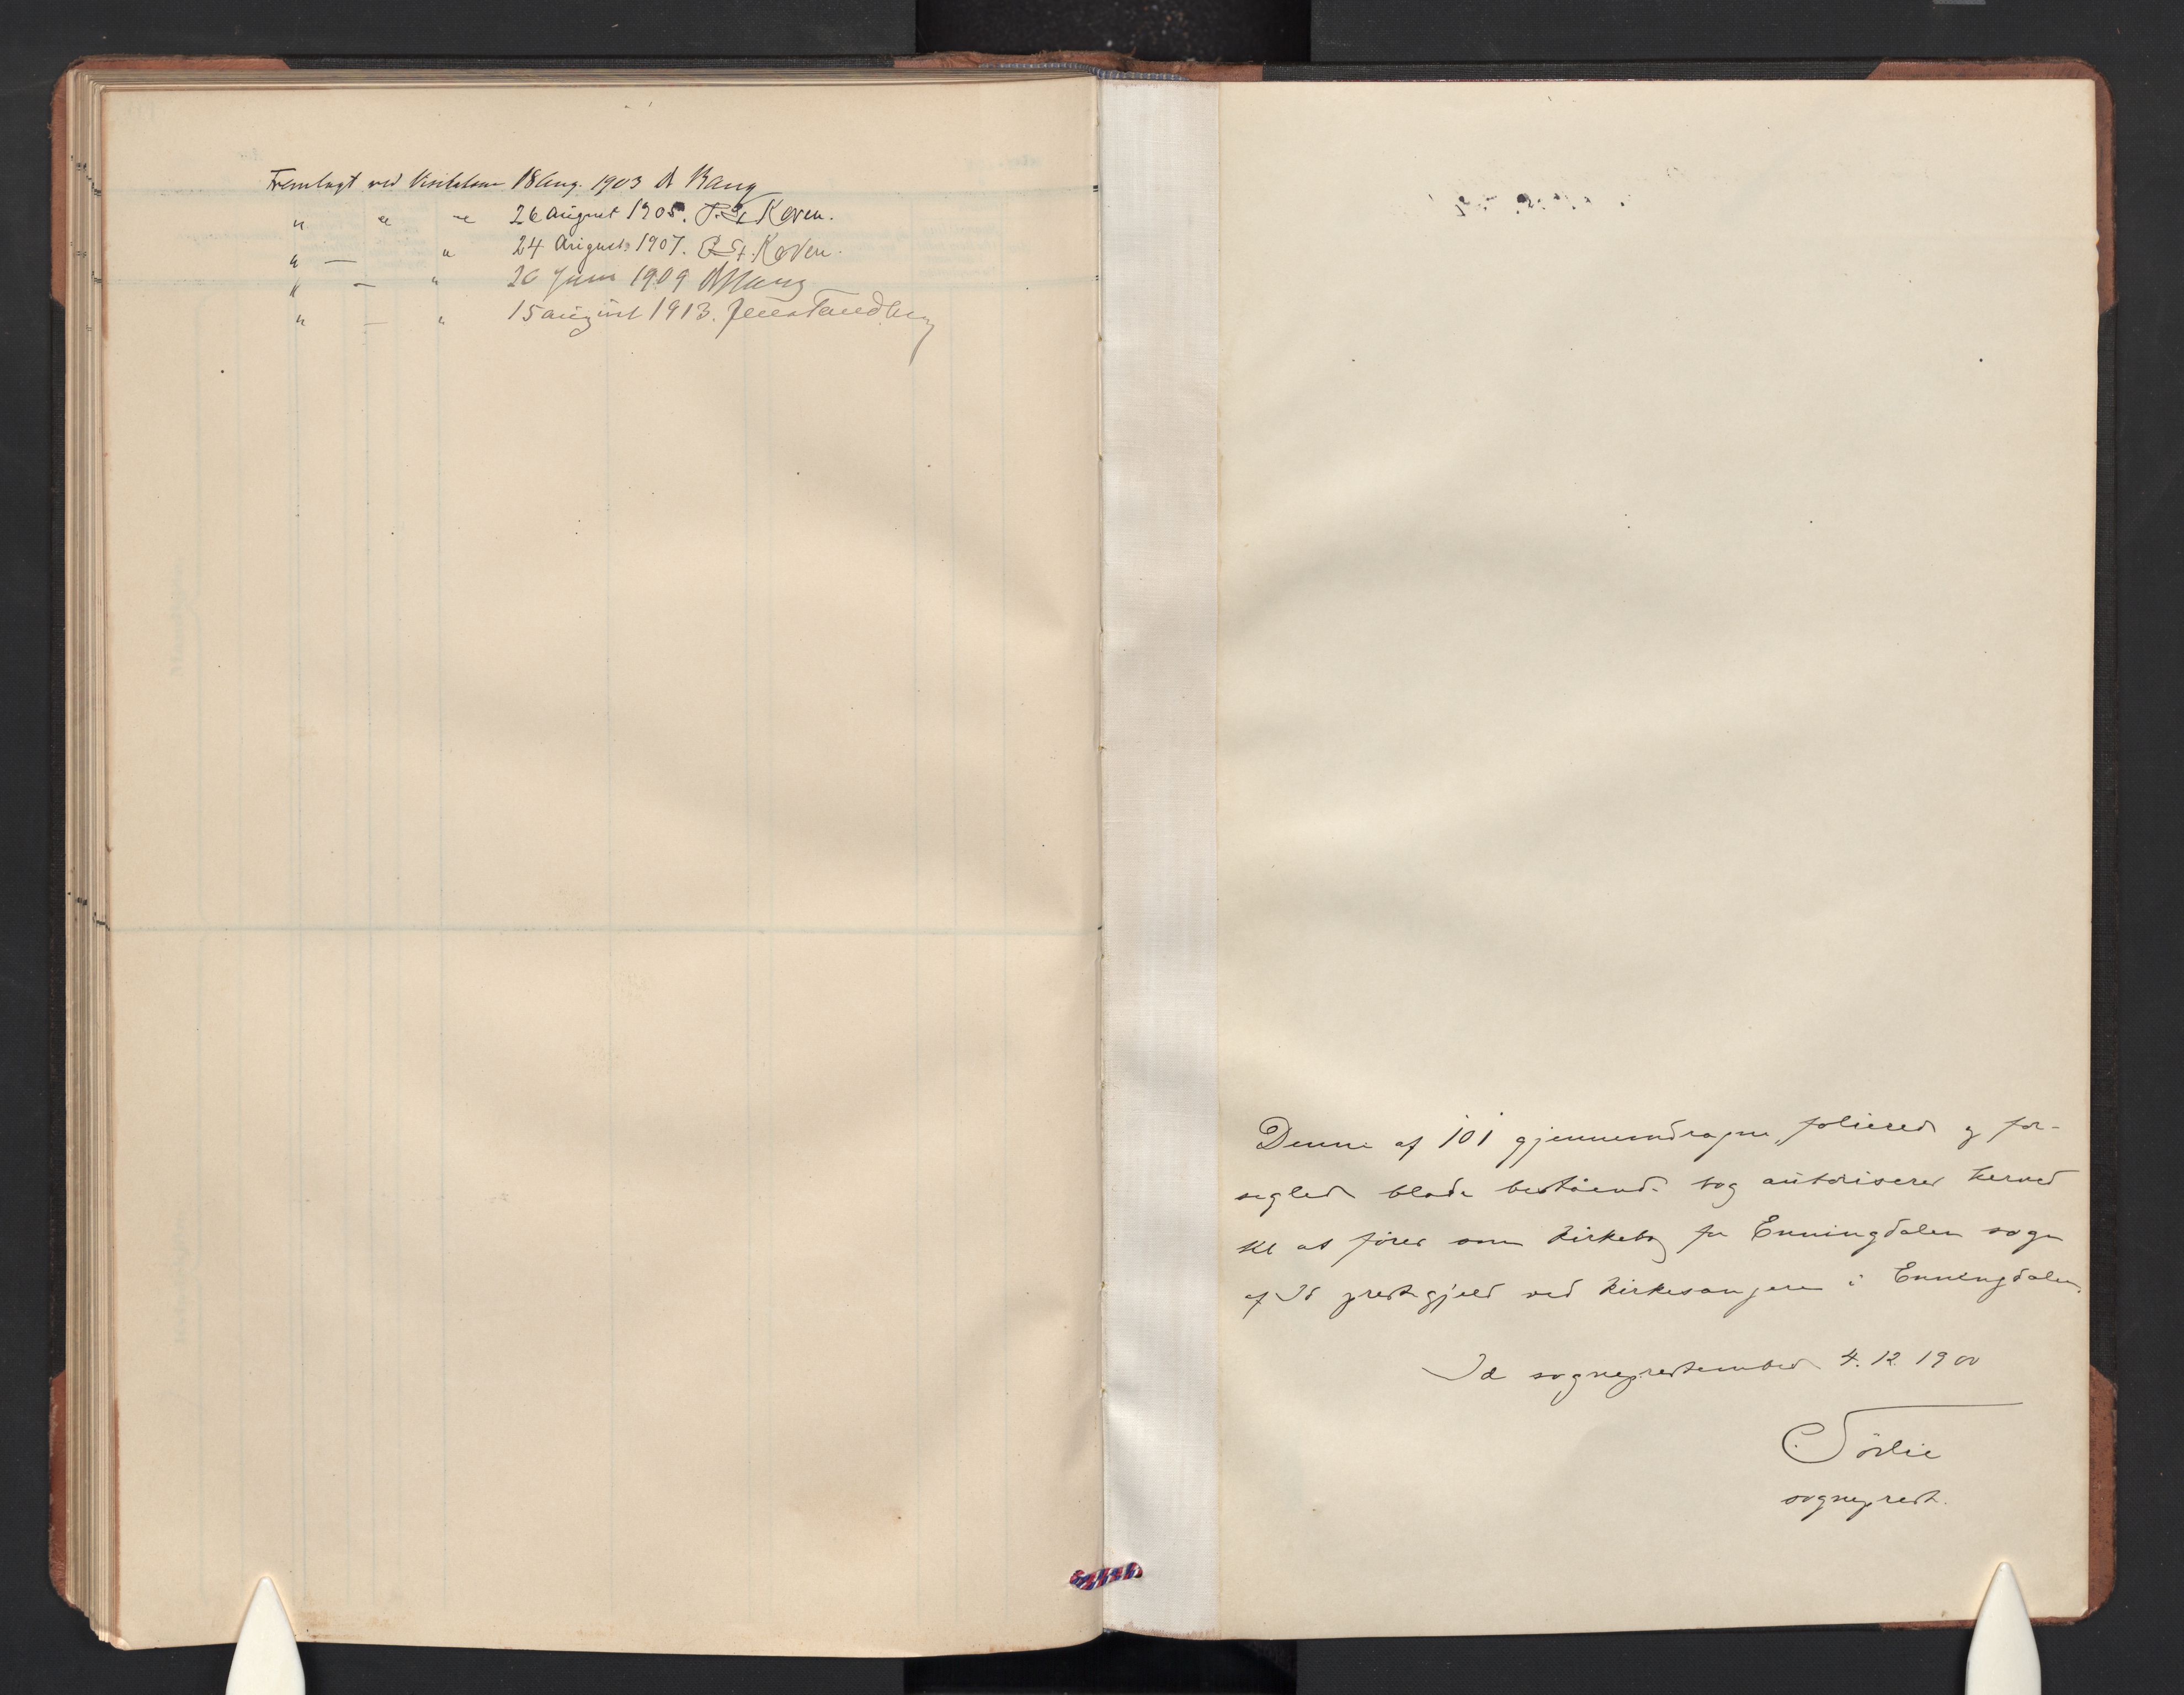 Fremlagt ved Visitatsen 18 Aug. 1903 A Bang
" " " 26 august 1905. P. St. Koren.
" — " 24 August 1907. P. St. Koren.
" — " 26 Juni 1909 A Bang
" — " 15 august 1913. Jens Tandberg
Denne af 101 gjennemdragne, folierede og for-
seglede blade bestående bog autoriseres herved
til at føres som kirkebog for Enningdalen sogn
af Id prestegjeld ved kirkesangeren i Enningdalen.
Id sogneprestembede 4. 12. 1900
C. Sörlie
sogneprest.